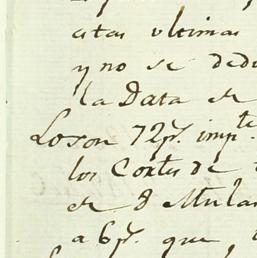 estas ultimas
y no se dedu
la Data de
Loson 72 ps. impte.
los Cortes de
de 8 Mulas
a 6 ps. que